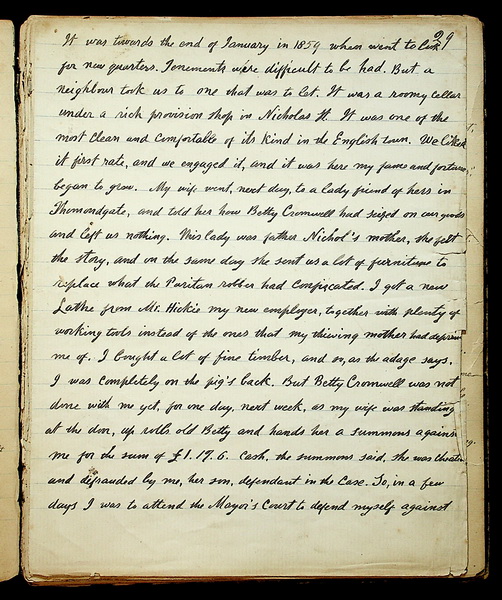 29
It was towards the end of January in 1859 when went to look
for new quarters. Tenements were difficult to be had. But a
neighbour took us to one that was to let. It was a roomy cellar
under a rich provision shop in Nicholas St. It was one of the
most clean and comfortable of its kind in the English town. We liked
it first rate, and we engaged it, and it was here my fame and fortune
began to grow. My wife went, next day, to a lady friend of hers in
Thomondgate, and told her how Betty Cromwell had seized on our goods
and left us nothing. This lady was father Nichol's mother, she felt
the story, and on the same day she sent us a lot of furniture to
replace what the Puritan robber had confiscated. I got a new
Lathe from Mr. Hickie my new employer, together with plenty of
working tools instead of the ones that my thieving mother had deprived
me of. I bought a lot of fine timber, and so, as the adage says,
I was completely on the pig's back. But Betty Cromwell was not
done with me yet, for one day, next week, as my wife was standing
at the door, up rolls old Betty and hands her a summons against
me for the sum of £1. 17. 6. Cash, the summons said, she was cheated
and defrauded by me, her son, defendant in the Case. So, in a few
days I was to attend the Mayor's Court to defend myself against